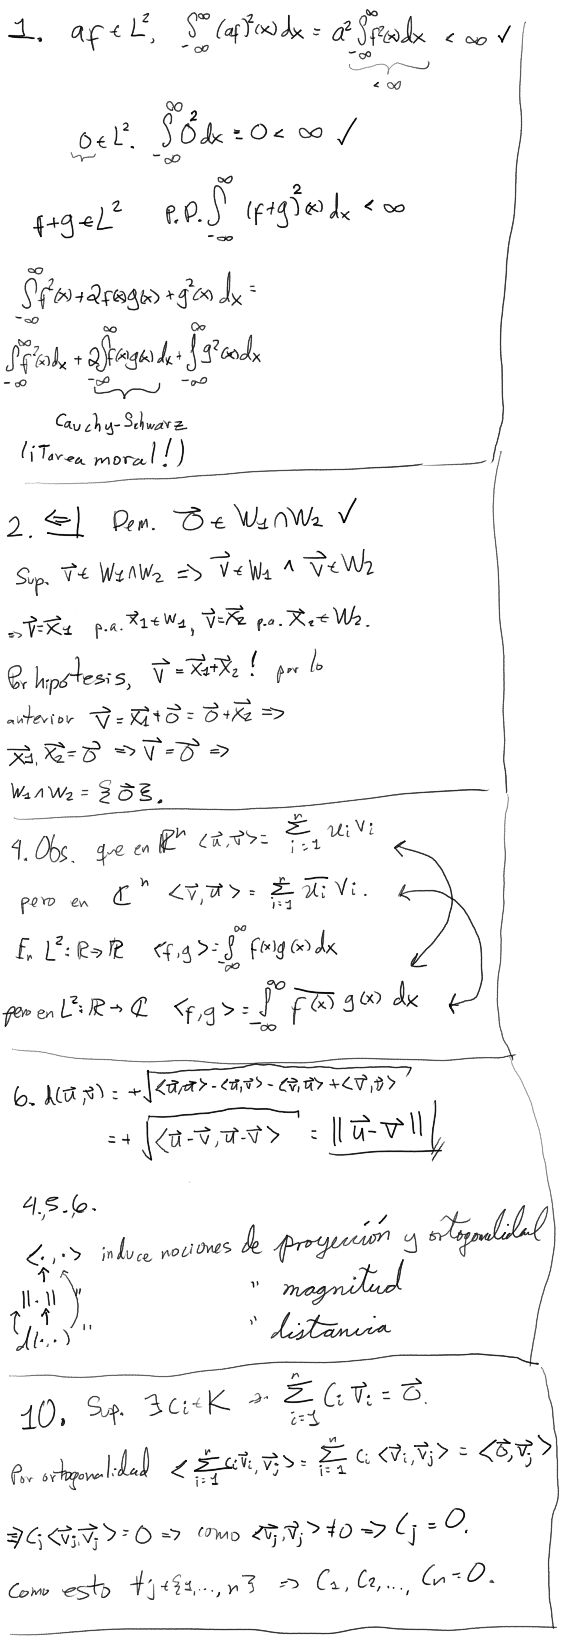 1. af ∈ L², ∫_{-∞}^{∞} (af)²(x)dx = a² ∫_{-∞}^{∞} f²(x)dx < ∞ ✓
< ∞
0 ∈ L². ∫_{-∞}^{∞} 0² dx = 0 < ∞ ✓
f+g ∈ L² P.D. ∫_{-∞}^{∞} (f+g)²(x) dx < ∞
∫_{-∞}^{∞} f²(x)+2f(x)g(x)+g²(x) dx =
∫_{-∞}^{∞} f²(x)dx + 2∫_{-∞}^{∞} f(x)g(x)dx + ∫_{-∞}^{∞} g²(x)dx
Cauchy-Schwarz
(¡Tarea moral!)
2. <=| Dem. 0⃗ ∈ W₁∩W₂ ✓
Sup. v⃗ ∈ W₁∩W₂ => v⃗ ∈ W₁ ∧ v⃗ ∈ W₂
=> v⃗=x⃗₁ p.a. x⃗₁ ∈ W₁, v⃗=x⃗₂ p.a. x⃗₂ ∈ W₂.
Por hipótesis, v⃗ = x⃗₁+x⃗₂ ! por lo
anterior v⃗ = x⃗₁+0⃗ = 0⃗+x⃗₂ =>
x⃗₁, x⃗₂ = 0⃗ => v⃗ = 0⃗ =>
W₁∩W₂ = {0⃗}.
4. Obs. que en ℝⁿ <u⃗,v⃗> = ∑_{i=1}^{n} uᵢvᵢ
pero en ℂⁿ <v⃗,u⃗> = ∑_{i=1}^{n} u̅ᵢ vᵢ.
En L²: ℝ→ℝ <f,g> = ∫_{-∞}^{∞} f(x)g(x)dx
pero en L²: ℝ→ℂ <f,g> = ∫_{-∞}^{∞} \overline{f(x)} g(x) dx
6. d(u⃗,v⃗) = +√(<u⃗,u⃗> - <u⃗,v⃗> - <v⃗,u⃗> + <v⃗,v⃗>)
= +√(<u⃗-v⃗, u⃗-v⃗>) = ||u⃗-v⃗||
4.,5.,6.
<·,·> induce nociones de proyección y ortogonalidad
||·|| " " magnitud
d(·,·) " " distancia
10. Sup. ∃ cᵢ ∈ K ∋ ∑_{i=1}^{n} cᵢ v⃗ᵢ = 0⃗.
Por ortogonalidad <∑_{i=1}^{n} cᵢv⃗ᵢ, v⃗ⱼ> = ∑_{i=1}^{n} cᵢ <v⃗ᵢ,v⃗ⱼ> = <0⃗,v⃗ⱼ>
=> cⱼ<v⃗ⱼ,v⃗ⱼ> = 0 => como <v⃗ⱼ,v⃗ⱼ> ≠ 0 => cⱼ = 0.
Como esto ∀ j ∈ {1,...,n} => c₁, c₂,..., cₙ = 0.